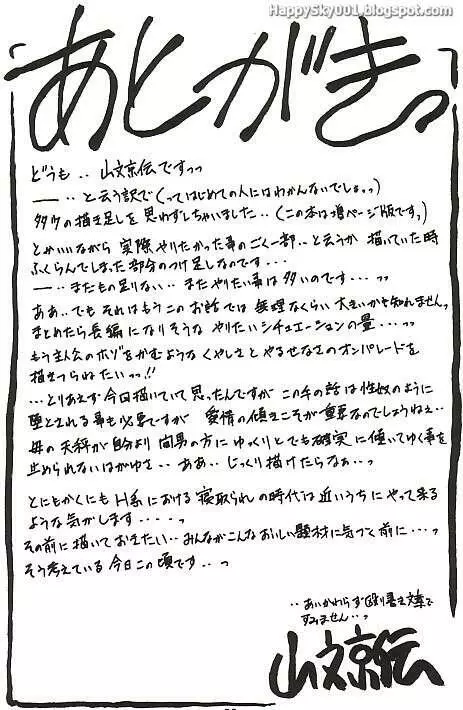 HappySky001.blogspot.com
あとがきっ
どうも‥山文京伝ですっっ
―‥と云う訳で(ってはじめての人にはわかんないでしょっっ)
多ウの描き足しを思わずしちゃいました‥(この本は増ページ版ですっ)
とかいいながら 実際やりたかった事のごく一部‥と云うか 描いていた時
ふくらんでしまった部分のつけ足しなのです・・・
―‥まだもの足りない‥まだやりたい事は多いのです・・・っっ
ああ‥でもそれはもうこのお話では無理なくらい大きいかも知れませんっ
まとめたら長編になりそうな やりたいシチュエーションの量・・・・っっ
もう主人公のホゾをかむような くやしさと やるせなさのオンパレードを
描きつらねたいっっ!!
・・・とりあえず今回描いていて思ったんですが この手の話は性奴のように
堕とされる事も必要ですが 愛情の傾きこそが重要なのでしょうねぇ‥
母の天秤が自分より 間男の方に ゆっくりとでも確実に傾いてゆく事を
止められないはがゆさ‥ああ‥じっくり描けたらなぁ‥っ
とにもかくにも H系における寝取られの時代は近いうちにやって来る
ような気がします・・・・っ
その前に描いておきたい‥みんながこんなおいしい題材に気づく前に・・・っ
そう考えている今日この頃です‥っ
‥あいかわらず殴り書き文章で
すみません‥っ
山文京伝